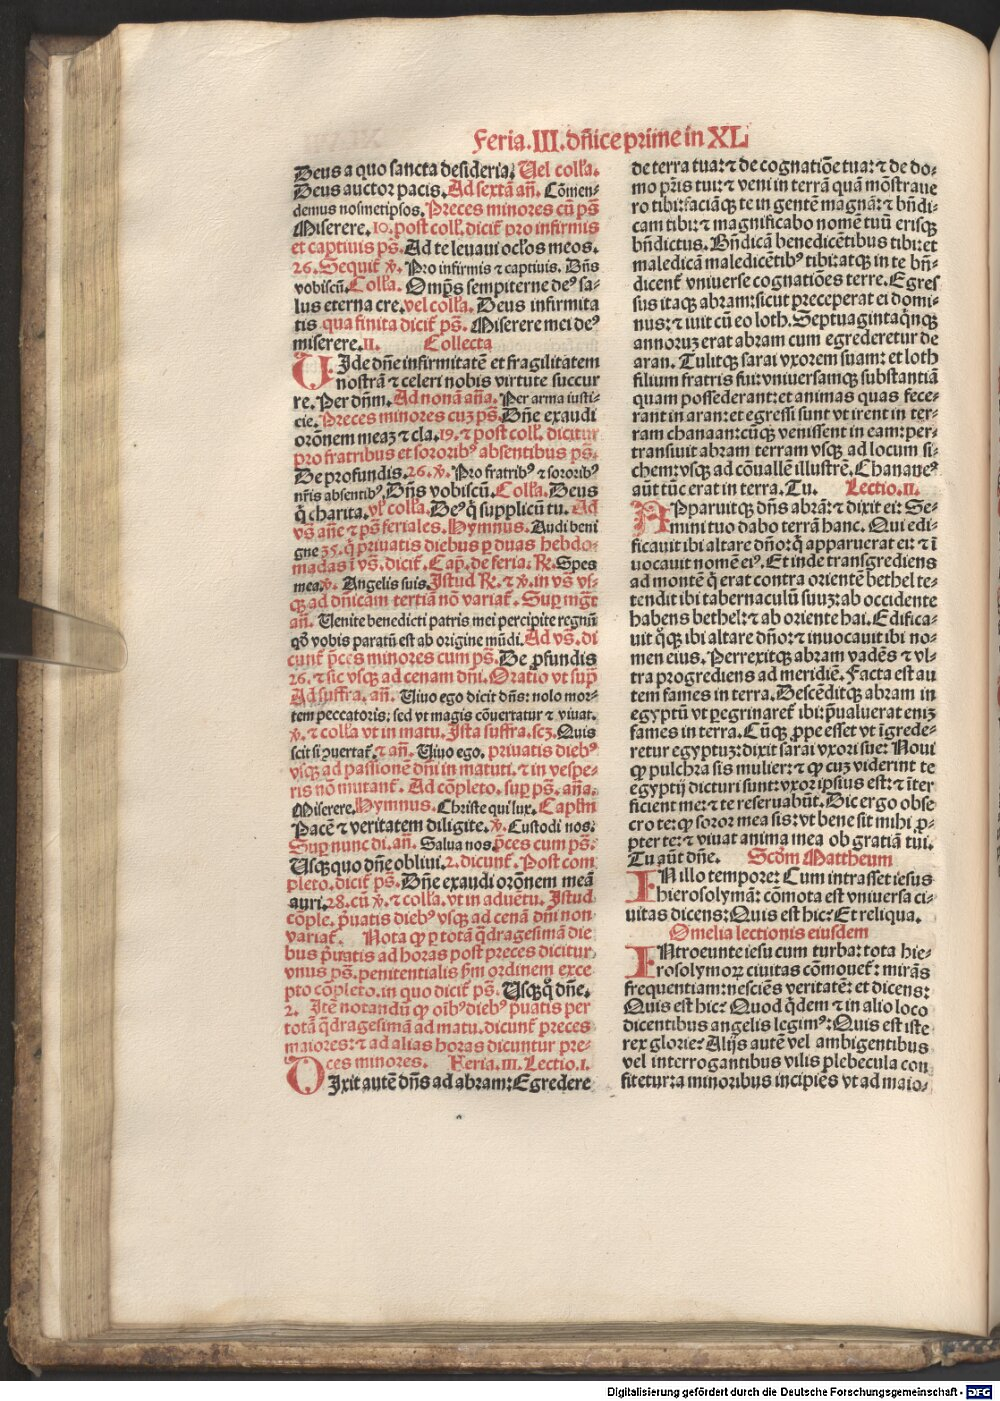 Feria.III.dñice prime in XL
Deus a quo sancta desideria; Vel coll'a.
Deus auctor pacis. Ad sextã añ. Cõmen-
demus nosmetipsos. Preces minores cũ pš
Miserere. 10. post coll'. diciť pro infirmis
et captiuis pš. Ad te leuaui ocl'os meos.
26. Sequiť ℣. Pro infirmis ⁊ captiuis. Dñs
vobiscũ. Coll'a. Omps̃ sempiterne deꝰ sa-
lus eterna cre. vel coll'a. Deus infirmita
tis qua finita diciť pš. Miserere mei deꝰ
miserere. II. Collecta
VIde dñe infirmitatẽ et fragilitatem
nostrã ⁊ celeri nobis virtute succur
re. Per dñm. Ad nonã aña. Per arma iusti-
cie. Preces minores cuʒ pš. Dñe exaudi
orõnem meaʒ ⁊ cla. 19. ⁊ post coll'. dicitur
pro fratribus et sororibꝰ absentibus pš.
De profundis. 26. ℣. Pro fratribꝰ ⁊ sororibꝰ
nr̃is absentibꝰ. Dñs vobiscũ. Coll'a. Deus
q̃ charita. vl' coll'a. Deꝰ q̃ supplicũ tu. Ad
vš añe ⁊ pš feriales. Hymnus. Audi beni
gne 35. q̃ priuatis diebus ꝑ duas hebdo-
madas ĩ vš. diciť. Cap̃. de feria. ℟. Spes
mea. ℣. Angelis suis. Istud ℟. ⁊ ℣. in vš vs-
qꝫ ad dñicam tertiã nõ variať. Suꝑ mg̃t
añ. Venite benedicti patris mei percipite regnũ
qð vobis paratũ est ab origine mũdi. Ad vš. di
cunť p̃ces minores cum pš. De ꝓfundis
26. ⁊ sic vsqꝫ ad cenam dñi. Oratio vt sup̃
Ad suffra. añ. Viuo ego dicit dñs: nolo mor-
tem peccatoris; sed vt magis cõuertatur ⁊ viuat.
℣. ⁊ coll'a vt in matu. Ista suffra. scʒ. Quis
scit si ꝯuertať. ⁊ añ. Viuo ego. priuatis diebꝰ
vsqꝫ ad passionẽ dñi in matuti. ⁊ in vespe-
ris nõ mutanť. Ad cõpleto. suꝑ pš. aña.
Miserere. Hymnus. Christe qui lux. Capl'm
Pacẽ ⁊ veritatem diligite. ℣. Custodi nos.
Suꝑ nunc di. añ. Salua nos. p̃ces cum pš.
Usqꝫquo dñe obliui. 2. dicunť. Post com
pleto. diciť pš. Dñe exaudi orõnem meã
auri. 28. cũ ℣. ⁊ coll'a. vt in aduẽtu. Istud
cõple. p̃uatis diebꝰ vsqꝫ ad cenã dñi non
variať. Nota ꝙ ꝑ totã q̃dragesimã die
bus p̃uatis ad horas post preces dicitur
vnus pš. penitentialis ẜm ordinem exce
pto cõpleto. in quo diciť pš. Usqꝫq̃ dñe.
2. Itẽ notandũ ꝙ oĩbꝰ diebꝰ p̃uatis per
totã q̃dragesimã ad matu. dicunť preces
maiores: ⁊ ad alias horas dicuntur pre-
ces minores. Feria. III. Lectio. I.
DIxit autẽ dñs ad abram: Egredere
de terra tua: ⁊ de cognatiõe tua: ⁊ de do-
mo pr̃is tui: ⁊ veni in terrã quã mõstraue
ro tibi: faciãqꝫ te in gentẽ magnã: ⁊ bñdi-
cam tibi: ⁊ magnificabo nomẽ tuũ erisqꝫ
bñdictus. Bñdicã benedicẽtibus tibi: et
maledicã maledicẽtibꝰ tibi: atqꝫ in te bñ-
dicenť vniuerse cognatiões terre. Egres
sus itaqꝫ abram: sicut preceperat ei domi-
nus: ⁊ iuit cũ eo loth. Septuaginta q̃nqꝫ
annoruʒ erat abram cum egrederetur de
aran. Tulitqꝫ sarai vxorem suam: et loth
filium fratris sui: vniuersamqꝫ substantiã
quam possederant: et animas quas fece-
rant in aran: et egressi sunt vt irent in ter-
ram chanaan: cũqꝫ venissent in eam: per-
transiuit abram terram vsqꝫ ad locum si-
chem: vsqꝫ ad cõuallẽ illustrẽ. Chananeꝰ
aũt tũc erat in terra. Tu. Lectio. II.
APparuitqꝫ dñs abrã: ⁊ dixit ei: Se-
mini tuo dabo terrã hanc. Qui edi-
ficauit ibi altare dño: q̃ apparuerat ei: ⁊ ĩ
uocauit nomẽ eiꝰ. Et inde transgrediens
ad montẽ q̃ erat contra orientẽ bethel te-
tendit ibi tabernaculũ suuʒ: ab occidente
habens bethel: ⁊ ab oriente hai. Edifica-
uit q̃qꝫ ibi altare dño: ⁊ inuocauit ibi no-
men eius. Perrexitqꝫ abram vadẽs ⁊ vl-
tra progrediens ad meridiẽ. Facta est au
tem fames in terra. Descẽditqꝫ abram in
egyptũ vt ꝑegrinareť ibi: p̃ualuerat eniʒ
fames in terra. Cũqꝫ ꝓpe esset vt ĩgrede-
retur egyptuʒ: dixit sarai vxori sue: Noui
ꝙ pulchra sis mulier: ⁊ ꝙ cuʒ viderint te
egyptij dicturi sunt: vxor ipsius est: ⁊ ĩter
ficient me: ⁊ te reseruabũt. Dic ergo obse
cro te: ꝙ soror mea sis: vt bene sit mihi ꝓ-
pter te: ⁊ viuat anima mea ob gratiã tui.
Tu aũt dñe. Scd̃m Mattheum
IN illo tempore: Cum intrasset iesus
hierosolymã: cõmota est vniuersa ci-
uitas dicens: Quis est hic? Et reliqua.
Omelia lectionis eiusdem
INtroeunte iesu cum turba: tota hie-
rosolymoꝝ ciuitas cõmoueť: mirãs
frequentiam: nesciẽs veritatẽ: et dicens:
Quis est hic? Quod q̃dem ⁊ in alio loco
dicentibus angelis legimꝰ: Quis est iste
rex glorie? Alijs autẽ vel ambigentibus
vel interrogantibus vilis plebecula con
fitetur: a minoribus incipiẽs vt ad maio-
Digitalisierung gefördert durch die Deutsche Forschungsgemeinschaft - DFG